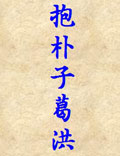 抱朴子葛洪